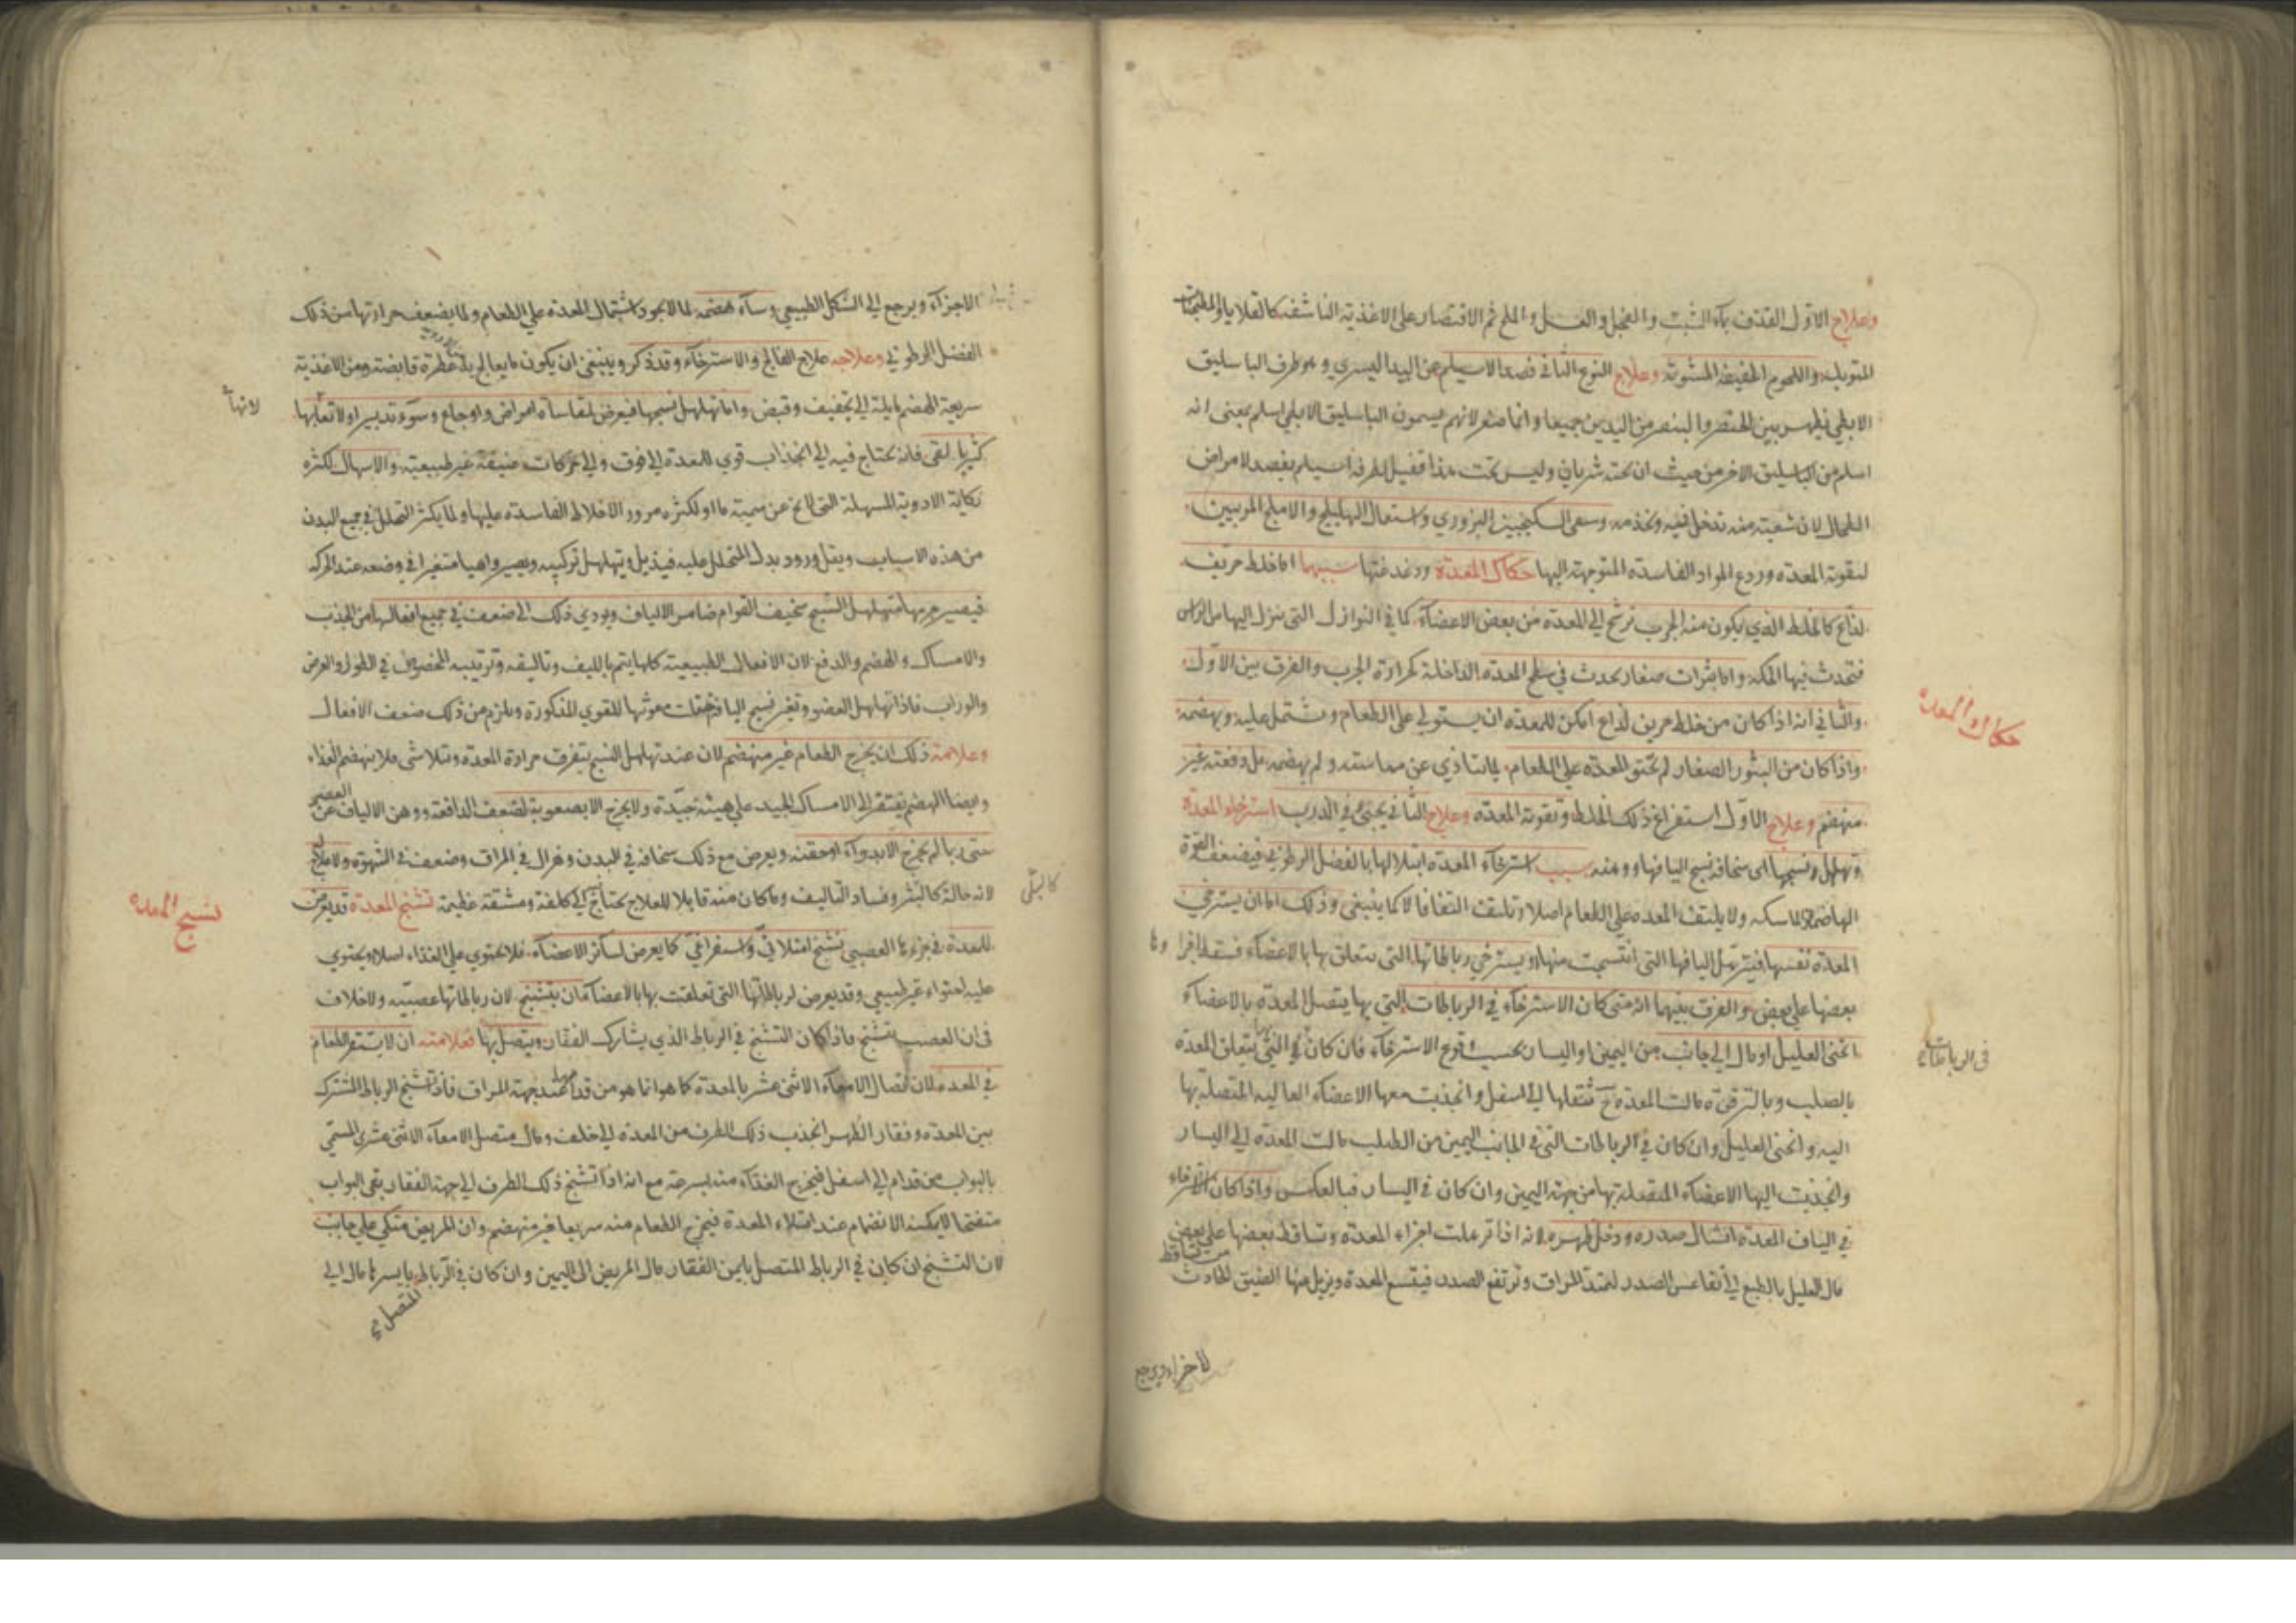 وعلاج الاول القذف بماء الشبث والفجل والعسل والملح ثم الاقتصار على الاغذية الناشفة كالقلايا والمطجنات
المتوبلة واللحوم الخفيفة المشوية وعلاج النوع الثاني فصد الاسيلم من اليد اليسرى وهو طرف الباسليق
الابطي يظهر بين الخنصر والبنصر من اليدين جميعا وانما صغر لانهم يسمون الباسليق الابطي اسلم بمعنى انه
اسلم من الباسليق الاخر من حيث ان تحته شريان وليس تحت هذا فقيل لطرفه اسيلم يفصد لامراض
الطحال لان شعبة منه تدخل فيه وتخدمه وسقي السكنجبين البزوري واستعمال الهليلج والاملج المربيين
لتقوية المعدة وردع المواد الفاسدة المتوجهة اليها حكاك المعدة ودغدغتها سببها اما خلط حريف
لذاع كالخلط الذي يكون منه الجرب ترشح الى المعدة من بعض الاعضاء كما في النوازل التي تنزل اليها من الراس
فتحدث فيها الحكة واما بثرات صغار تحدث في سطح المعدة الداخلة كحرارة الجرب والفرق بين الاول
والثاني انه اذا كان من خلط حريف لذاع امكن للمعدة ان يستولي على الطعام وتشتمل عليه وتهضمه
واذا كان من البثور الصغار لم تحتو المعدة على الطعام لما يتاذي عن مماسته ولم يهضمه بل دفعته غير
منهضم وعلاج الاول استفراغ ذلك الخلط وتقوية المعدة وعلاج الثاني يجئ في الذرب استرخاء المعدة
وتهلهل نسجها اي سخافة نسج اليافها ووهنه سبب استرخاء المعدة ابتلالها بالفضل الرطوبي فيضعف القوة
الهاضمة والماسكة ولا يلتف المعدة على الطعام اصلا وتلتف التفافا لا كما ينبغي وذلك اما ان يسترخي
المعدة نفسها فيترهل اليافها التي انتسجت منها او يسترخي رباطاتها التي يتعلق بها بالاعضاء فتسقط اجزا وها
بعضها على بعض والفرق بينهما انه متى كان الاسترخاء في الرباطات التي بها يتصل المعدة بالاعضاء
انحنى العليل او مال الى جانب من اليمين او اليسار بحسب وقوع الاسترخاء فان كان في التي بها يتعلق المعدة
بالصلب وبالترقوة مالت المعدة ح بثقلها الى اسفل وانجذبت معها الاعضاء العالية المتصلة بها
اليه وانحنى العليل وان كان في الرباطات التي في الجانب اليمين من الصلب مالت المعدة الى اليسار
وانجذبت اليها الاعضاء المتصلة بها من جهة اليمين وان كان في اليسار فبالعكس واذا كان الاسترخاء
في الياف المعدة انشال صدره ودخل ظهره لانه اذا ترهلت اجزاء المعدة وتساقط بعضها على بعض
مال العليل بالطبع الى تقاعس الصدر لتمتد المراق وترتفع الصدر فيتسع المعدة ويزيل عنها الضيق الحادث
من تساقط
الاجزاء ويرجع
حكاك المعدة
في الرباطات
الاجزاء ويرجع الى الشكل الطبيعي وساء هضمه لما لا يجود اشتمال المعدة على الطعام ولما يضعف حرارتها من ذلك
الفضل الرطوبي وعلاجه علاج الفالج والاسترخاء وقد ذكر وينبغي ان يكون ما يعالج به عطرة قابضة ومن الاغذية
سريعة الهضم مايلة الى تجفيف وقبض واما تهلهل نسجها فيعرض لمقاساة امراض واوجاع وسوء تدبير او لاتعابها
كثيرا بقئ فانه يحتاج فيه الى انجذاب قوي للمعدة الى فوق والى حركات عنيفة غير طبيعية والاسهال لكثرة
نكاية الادوية المسهلة التي لا يخ عن سمية ما او لكثرة مرور الاخلاط الفاسدة عليها ولما يكثر التحلل في جميع البدن
من هذه الاسباب ويقل ورود بدل المتحلل عليه فيذبل ويتهلهل تركيبه ويصير واهيا متغيرا في وضعه عند الحركة
فيصير جرمها متهلهل النسج سخيف القوام ضامر الالياف ويودي ذلك الى ضعف في جميع افعالها من الجذب
والامساك والهضم والدفع لان الافعال الطبيعية كلها يتم بالليف وتاليفه وترتيبه المخصوص في الطول والعرض
والوراب فاذا تهلهل العضو وتغير نسج اليافه ضعف معونتها للقوي المذكورة ويلزم من ذلك ضعف الافعال
وعلامة ذلك ان يخرج الطعام غير منهضم لان عند تهلهل النسج يتفرق حرارة المعدة وتتلاشى فلا ينهضم الغذاء
وايضا الهضم يفتقر الى الامساك الجيد على هيئة جيدة ولا يخرج الا بصعوبة لضعف الدافعة ووهن الالياف عن العصر
حتى ربما لم يخرج الا بدواء او حقنة ويعرض مع ذلك سخافة في البدن وهزال في المراق وضعف في الشهوة ولا علاج له
لانه حالة كالبثر وفساد التاليف وما كان منه قابلا للعلاج يحتاج الى كلفة ومشقة عظيمة تشنج المعدة قد يعرض
للمعدة في جزءها العصبي تشنج امتلائي واستفراغي كما يعرض لسائر الاعضاء فلا يحتوي على الغذاء اصلا ويحتوي
عليه احتواء غير طبيعي وقد يعرض لرباطاتها التي تعلقت بها بالاعضاء ان يتشنج لان رباطاتها عصبية ولا خلاف
في ان العصب يتشنج فاذا كان التشنج في الرباط الذي يشارك الفقار ويتصل بها فعلامته ان لا يستقر الطعام
في المعدة لان اتصال الامعاء الاثنى عشر بالمعدة كما هو انما هو من قدام عند جهة المراق فاذا تشنج الرباط المشترك
بين المعدة وفقار الظهر انجذب ذلك الطرف من المعدة الى خلف ومال متصل الامعاء الاثنى عشري المسمى
بالبواب من قدام الى اسفل فيخرج الغذاء منه بسرعة مع انه اذا تشنج ذلك الطرف الى جهة الفقار بقى البواب
منفتحا لا يمكنه الانضمام عند امتلاء المعدة فيخرج الطعام منه سريعا غير منهضم وان المريض متكي على جانب
لان التشنج ان كان في الرباط المتصل بايمن الفقار مال المريض الى اليمين وان كان في الرباط بايسرها مال الى
المتصل
لانها
كالبلى
تشنج المعدة